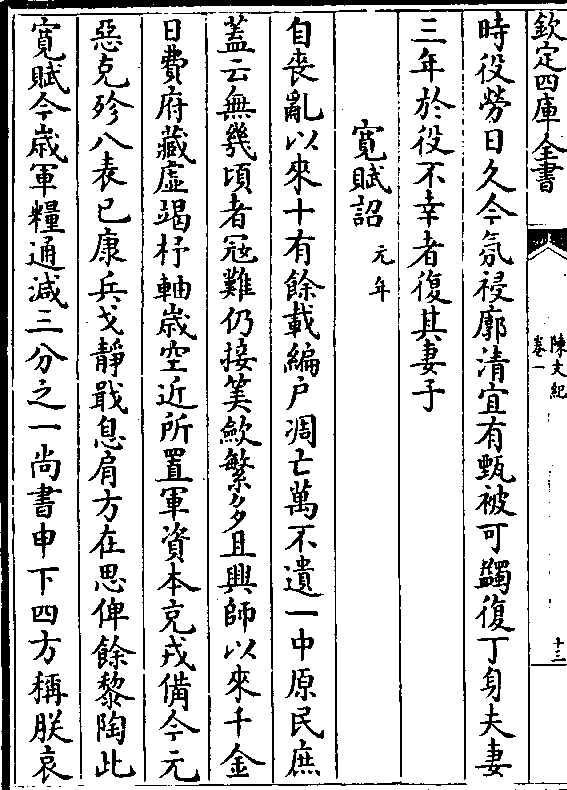 欽定四庫全書
陳文紀
卷一
十三
時役勞日久今氛祲廓清宜有甄被可蠲復丁身夫妻
三年於役不幸者復其妻子
寛賦詔 元年
自喪亂以來十有餘載編户凋亡萬不遺一中原民庶
蓋云無幾頃者寇難仍接筭歛繁多且興師以來千金
日費府藏虛竭杼軸歲空近所置軍資本充戎備今元
惡克殄八表已康兵戈靜戢息肩方在思俾餘黎陶此
寛賦今歲軍糧通減三分之一尚書申下四方稱朕哀